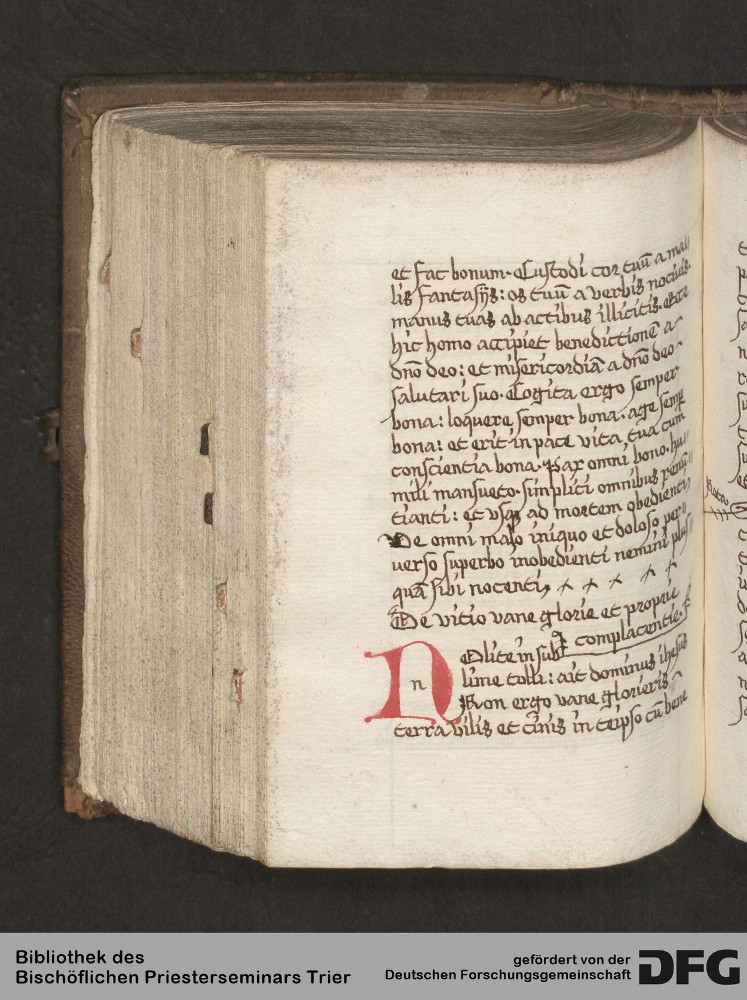 et fac bonum. Custodi cor tuū a mal
lis fantasijs: os tuū a verbis nociuis.
manus tuas ab actibus illicitis. Ecce
hic homo accipiet benedictionē a
dño deo: et misericordiā a dño deo
salutari suo. Cogita ergo semper
bona: loquere semper bona. age semꝑ
bona: et erit in pace vita tua cum
conscientia bona. Pax omni bono. hu
mili mansueto. simplici omnibus
tianti: et vsqꝫ ad mortem obedienti
De omni malo iniquo et doloso per
uerso superbo inobedienti nemini plus
quā sibi nocenti + + + + +
De vitio vane glorie et proprie
complacentie.
N n Olite in sub
lime tolli: ait dominus ihesus
Non ergo vane glorieris
terra vilis et cinis in teipso cū bene
Nota
Bibliothek des
Bischöflichen Priesterseminars Trier
gefördert von der
Deutschen Forschungsgemeinschaft
DFG